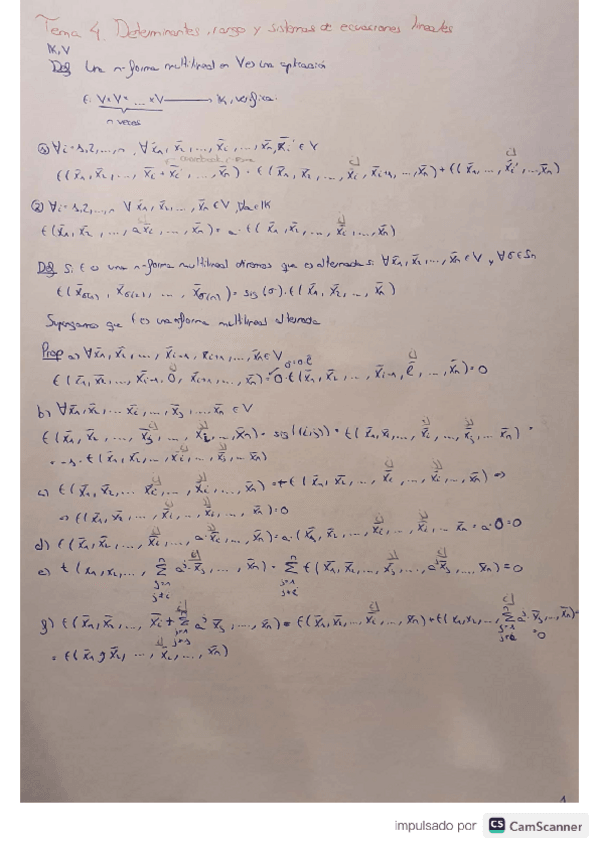 Tema 4. Determinantes, rango y sistemas de ecuaciones lineales
K, V
Def Una n-forma multilineal en V es una aplicación
f: V×V× ... ×V → K, verifica:
n veces
① ∀i=1,2,...,n, ∀ x̄₁, x̄₂, ..., x̄ᵢ, ..., x̄ₙ, x̄ᵢ' ∈ V
f(x̄₁, x̄₂, ..., x̄ᵢ + x̄ᵢ', ..., x̄ₙ) = f(x̄₁, x̄₂, ..., x̄ᵢ, x̄ᵢ₊₁, ..., x̄ₙ) + f(x̄₁, ..., x̄ᵢ', ..., x̄ₙ)
② ∀i=1,2,...,n ∀ x̄₁, x̄₂, ..., x̄ₙ ∈ V, ∀a ∈ K
f(x̄₁, x̄₂, ..., a x̄ᵢ, ..., x̄ₙ) = a · f(x̄₁, x̄₂, ..., x̄ᵢ, ..., x̄ₙ)
Def Si f es una n-forma multilineal diremos que es alternada si ∀ x̄₁, x̄₂, ..., x̄ₙ ∈ V y ∀σ ∈ Sn
f(x̄σ(1), x̄σ(2), ..., x̄σ(n)) = sig(σ) · f(x̄₁, x̄₂, ..., x̄ₙ)
Supongamos que f es una forma multilineal alternada
Prop a) ∀ x̄₁, x̄₂, ..., x̄ᵢ₋₁, x̄ᵢ₊₁, ..., x̄ₙ ∈ V
f(x̄₁, x̄₂, ..., x̄ᵢ₋₁, 0̄, x̄ᵢ₊₁, ..., x̄ₙ) = 0 · f(x̄₁, x̄₂, ..., x̄ᵢ₋₁, ē, ..., x̄ₙ) = 0
b) ∀ x̄₁, x̄₂, ... x̄ᵢ, ..., x̄ⱼ, ... x̄ₙ ∈ V
f(x̄₁, x̄₂, ..., x̄ⱼ, ..., x̄ᵢ, ..., x̄ₙ) = sig((i,j)) · f(x̄₁, x̄₂, ..., x̄ᵢ, ..., x̄ⱼ, ... x̄ₙ) =
= -1 · f(x̄₁, x̄₂, ..., x̄ᵢ, ..., x̄ⱼ, ... x̄ₙ)
c) f(x̄₁, x̄₂, ... x̄ᵢ, ..., x̄ᵢ, ..., x̄ₙ) = f(x̄₁, x̄₂, ..., x̄ᵢ, ..., x̄ᵢ, ..., x̄ₙ) ⇒
⇒ f(x̄₁, x̄₂, ..., x̄ᵢ, ..., x̄ᵢ, ..., x̄ₙ) = 0
d) f(x̄₁, x̄₂, ..., x̄ᵢ, ..., a · x̄ᵢ, ..., x̄ₙ) = a · (x̄₁, x̄₂, ..., x̄ᵢ, ..., x̄ᵢ, ... x̄ₙ = a · 0 = 0
e) f(x₁, x₂, ..., Σ aʲ · x̄ⱼ, ..., x̄ₙ) = Σ f(x̄₁, x̄₂, ..., x̄ⱼ, ..., aʲ x̄ⱼ, ..., x̄ₙ) = 0
g) f(x̄₁, x̄₂, ..., x̄ᵢ + Σ aʲ x̄ⱼ, ..., x̄ₙ) = f(x̄₁, x̄₂, ..., x̄ᵢ, ..., x̄ₙ) + f(x₁, x₂, ..., Σ aʲ · x̄ⱼ, ..., x̄ₙ) =
= f(x̄₁, x̄₂, ..., x̄ᵢ, ..., x̄ₙ)
1
impulsado por CS CamScanner